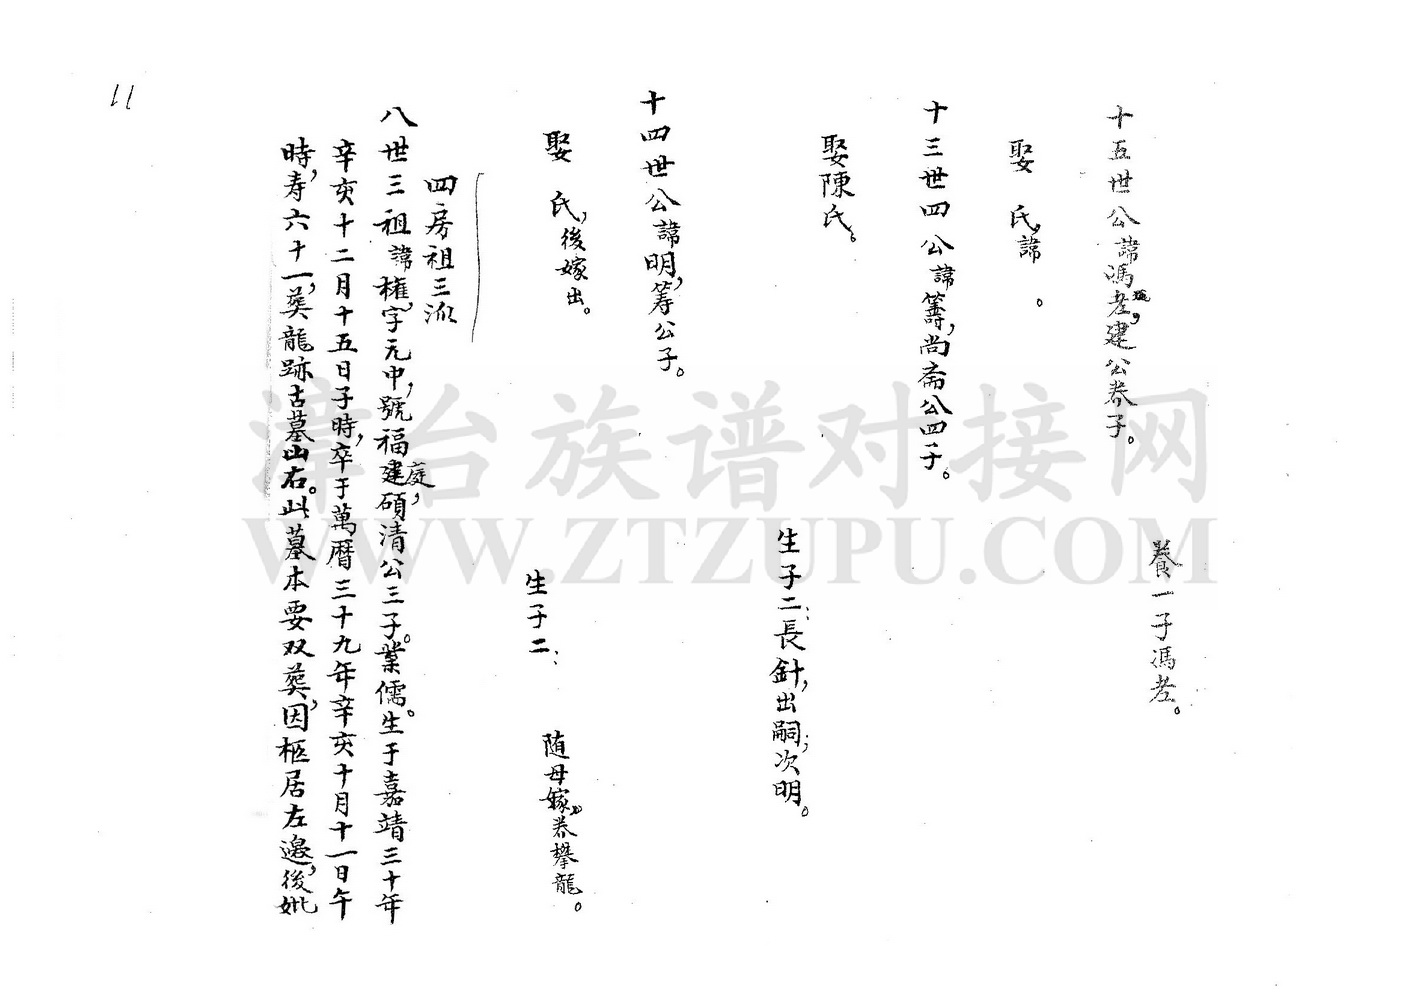 養一子馮老。
十五世公諱馮老,建公养子。
娶 氏,諱 。
十三世四公諱籌,尚斋公四子。
娶陳氏。
生子二:長針,出嗣;次明。
十四世公諱明,筹公子。
娶 氏,後嫁出。
生子二:
随母嫁, 养攀龍。
四房祖三派
八世三祖諱權,字元中,號福建庭,碩清公三子。業儒。生于嘉靖三十年
辛亥十二月十五日子時,卒于萬曆三十九年辛亥十月十一日午
時,寿六十一,葬龍跡古墓山右。此墓本要双葬,因柩居左邊,後妣
11
漳台族谱对接网
WWW.ZTZUPU.COM